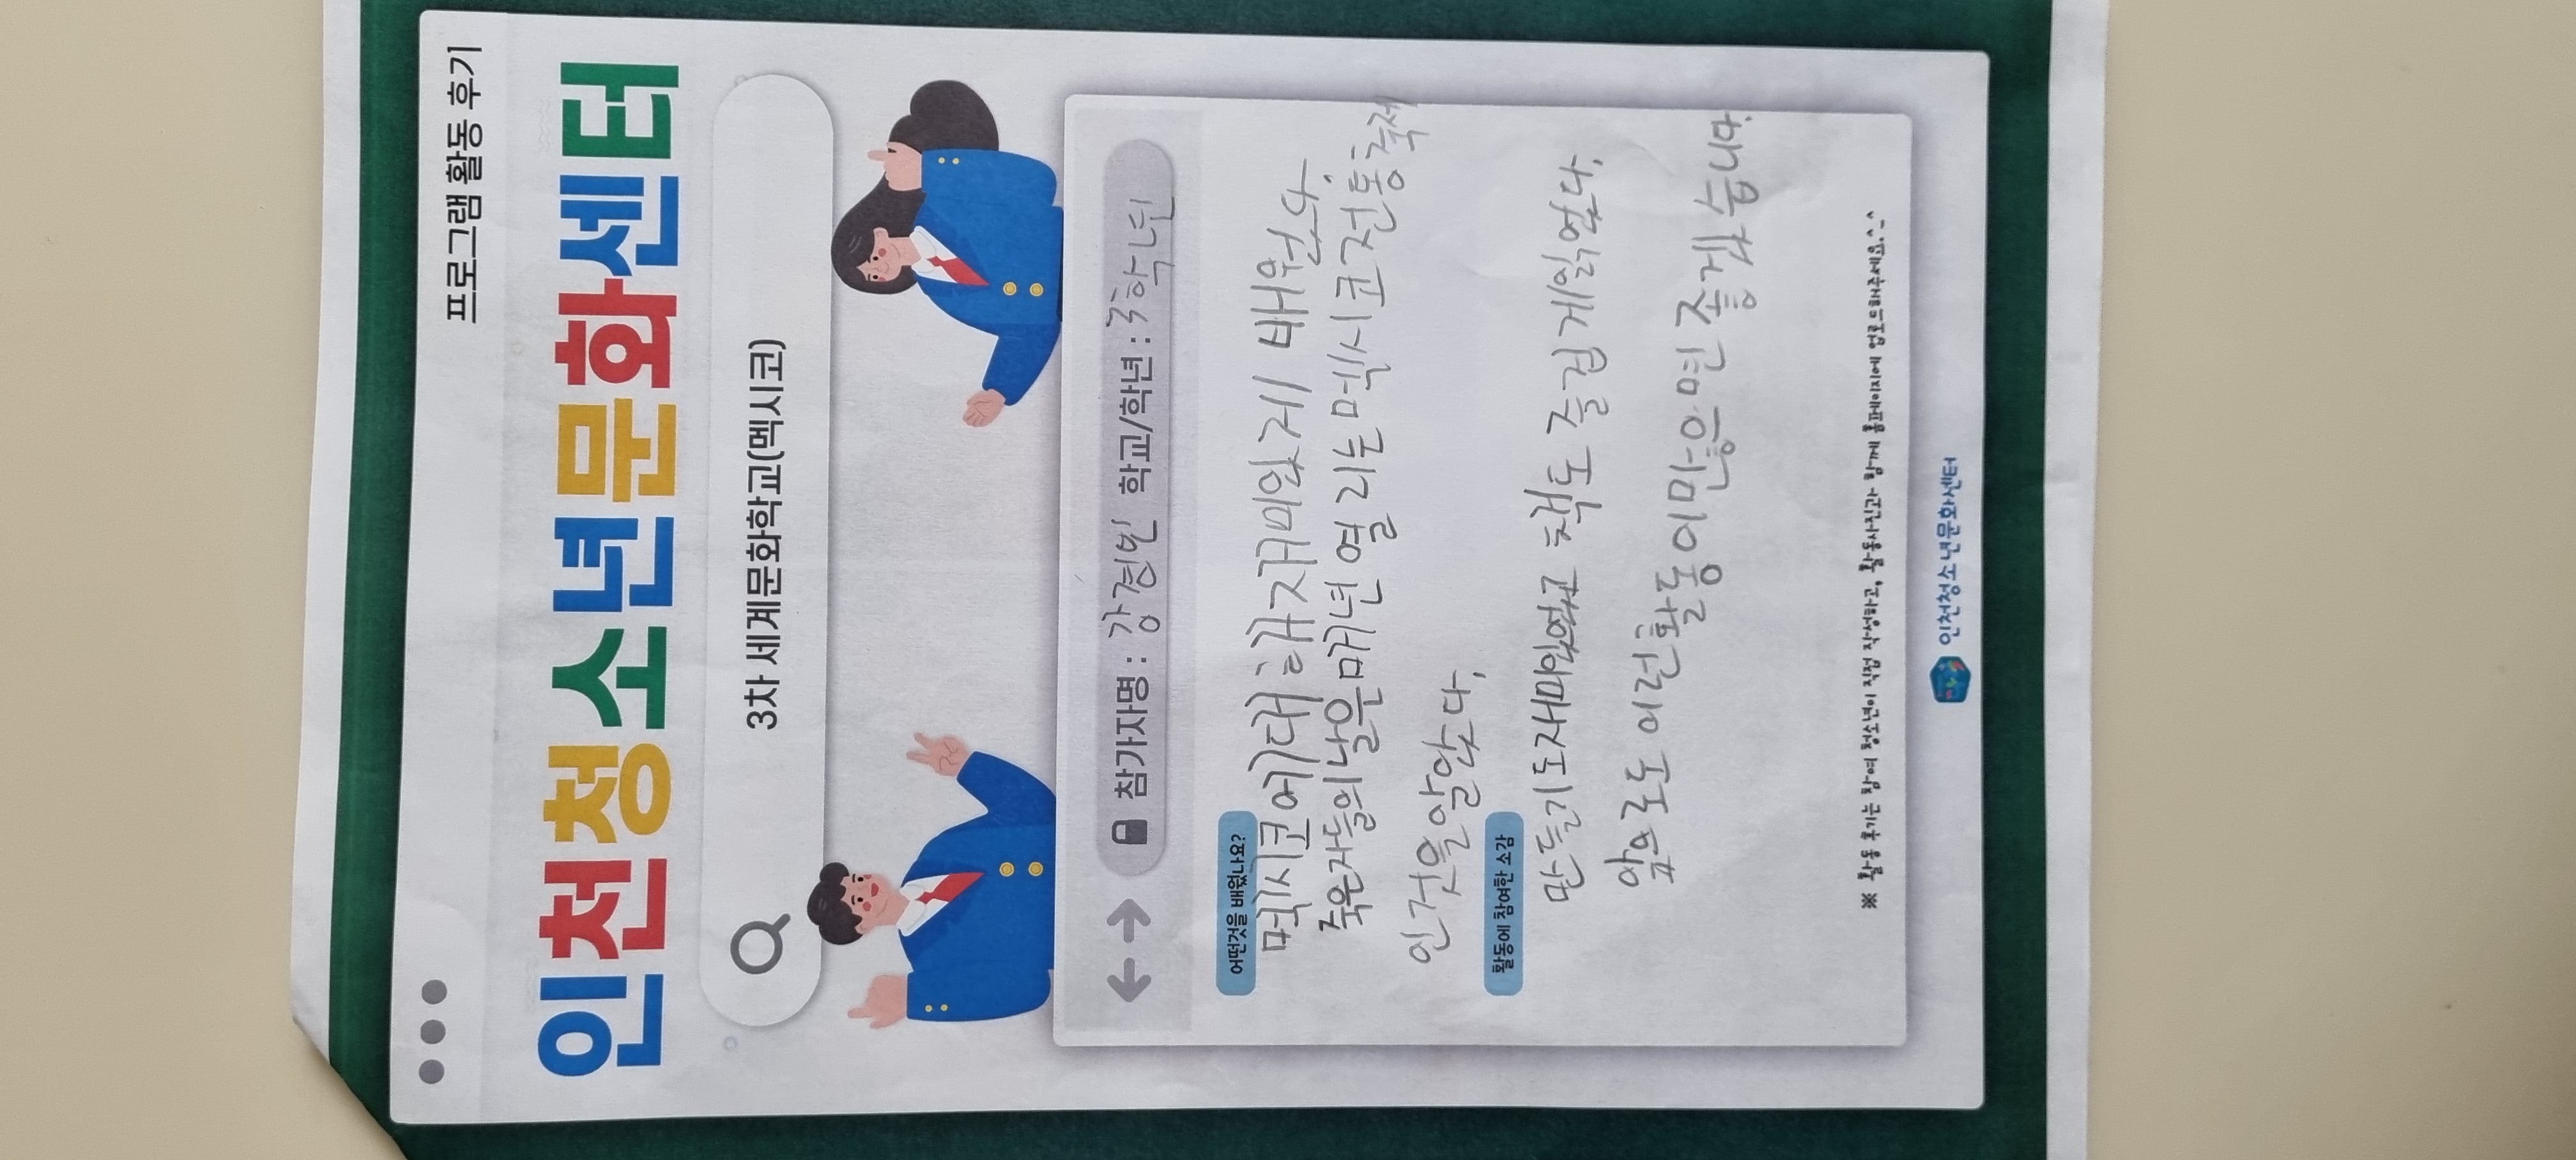 프로그램 활동 후기
인천청소년문화센터
3차 세계문화학교(멕시코)
참가자명 : 강경빈 학교/학년 : 3학년
어떤것을 배웠나요?
멕시코에대해자재미있게 배웠다.
죽은자들의날은매년열리는멕시코전통축제
인것을알았다.
활동에 참여한 소감
만들기도재미있었고 책도 즐겁게읽었다.
앞으로도 이런활동이많으면좋겠습니다.
※ 활동 후기는 참여 청소년이 직접 작성하고, 활동사진과 함께 홈페이지에 업로드해주세요.^^
인천청소년문화센터